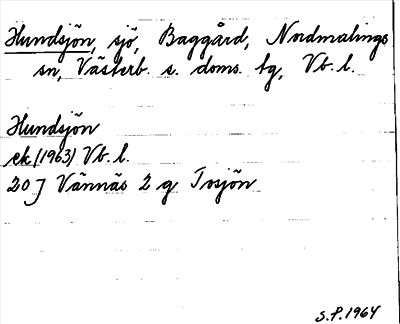 Hundsjön, sjö, Baggård, Nordmalings
sn, Västerb. s. doms. tg, Vb. l.
Hundsjön
ek (1963) Vb. l.
20 J Vännäs 2 g Tvsjön
S.P. 1964